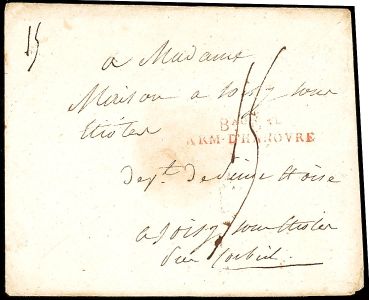 15
a Madame
Maison a Soisy sous
Etiolles
ARM. D'HANOVRE
dept. de Seine et Oise
a Soisy sous Etiolles
Par Corbeil